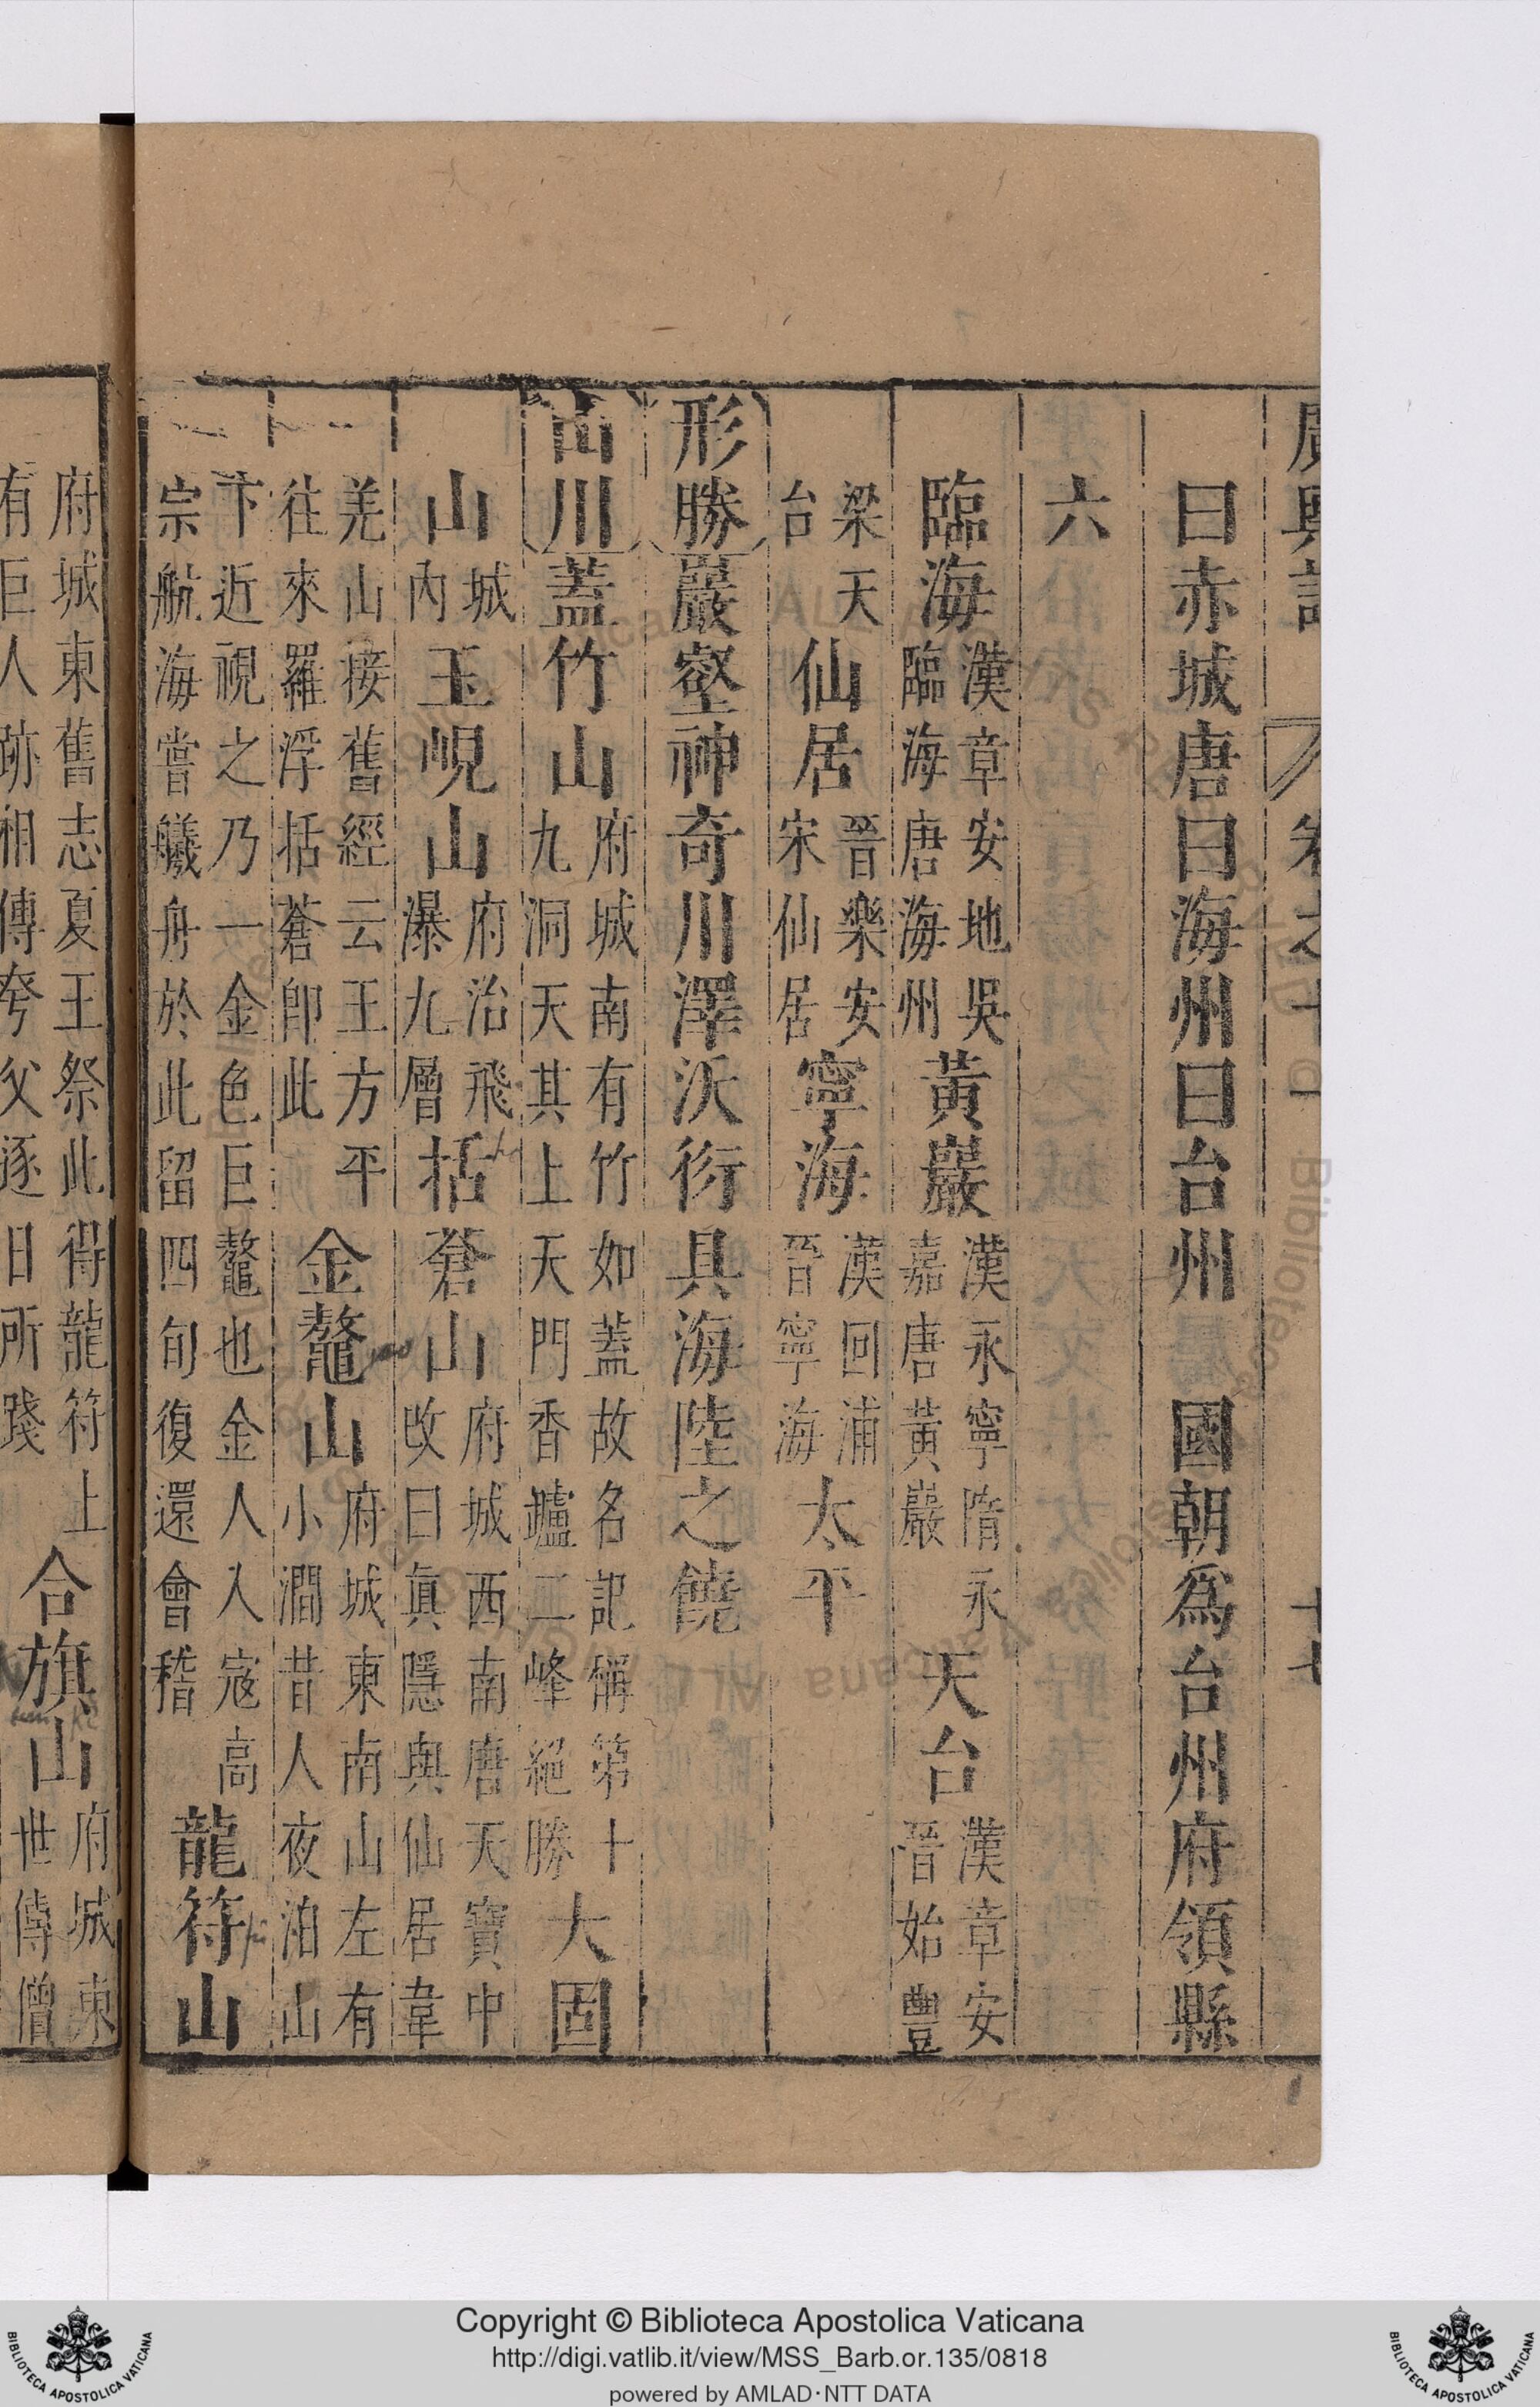 廣輿記 卷之十一 十七
曰赤城唐曰海州曰台州 國朝爲台州府領縣
六
臨海漢章安地吳臨海唐海州 黃巖漢永寧隋永嘉唐黃巖 天台漢章安晉始豐
梁天台 仙居晉樂安宋仙居 寧海漢回浦晉寧海 太平
形勝巖壑神奇川澤沃衍具海陸之饒
山川蓋竹山府城南有竹如蓋故名記稱第十九洞天其上天門香爐二峰絕勝 大固
山城內 玉峴山府治飛瀑九層 括蒼山府城西南唐天寶中改曰眞隱與仙居韋
羌山接舊經云王方平往來羅浮括蒼卽此 金鼇山府城東南山左有小澗昔人夜泊山
下近視之乃一金色巨鼇也金人入寇高宗航海嘗艤舟於此留四旬復還會稽 龍符山
府城東舊志夏王祭此得龍符上有巨人跡相傳夸父逐日所踐 合旗山府城東世傳僧
Copyright © Biblioteca Apostolica Vaticana
http://digi.vatlib.it/view/MSS_Barb.or.135/0818
powered by AMLAD·NTT DATA
BIBLIOTECA APOSTOLICA VATICANA
BIBLIOTECA APOSTOLICA VATICANA